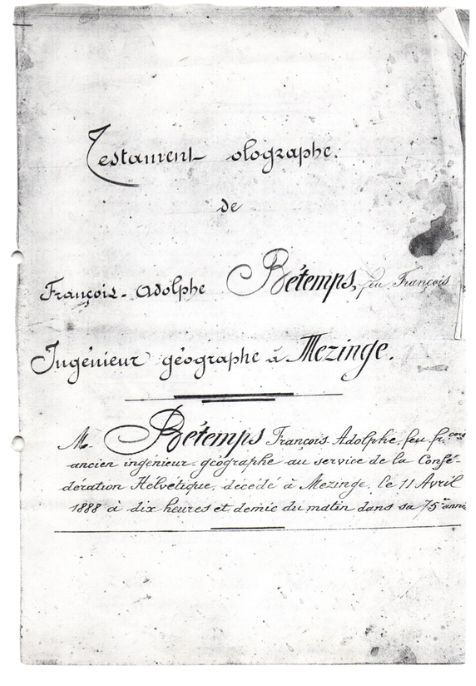 Testament olographe.
de
François-Adolphe Bétemps, feu François
Ingénieur géographe à Mezinge.
M Bétemps François Adolphe, feu fr.çois
ancien ingénieur-géographe au service de la Confé-
dération Helvétique, décédé à Mezinge, le 11 Avril
1888 à dix heures et demie du matin dans sa 75e année